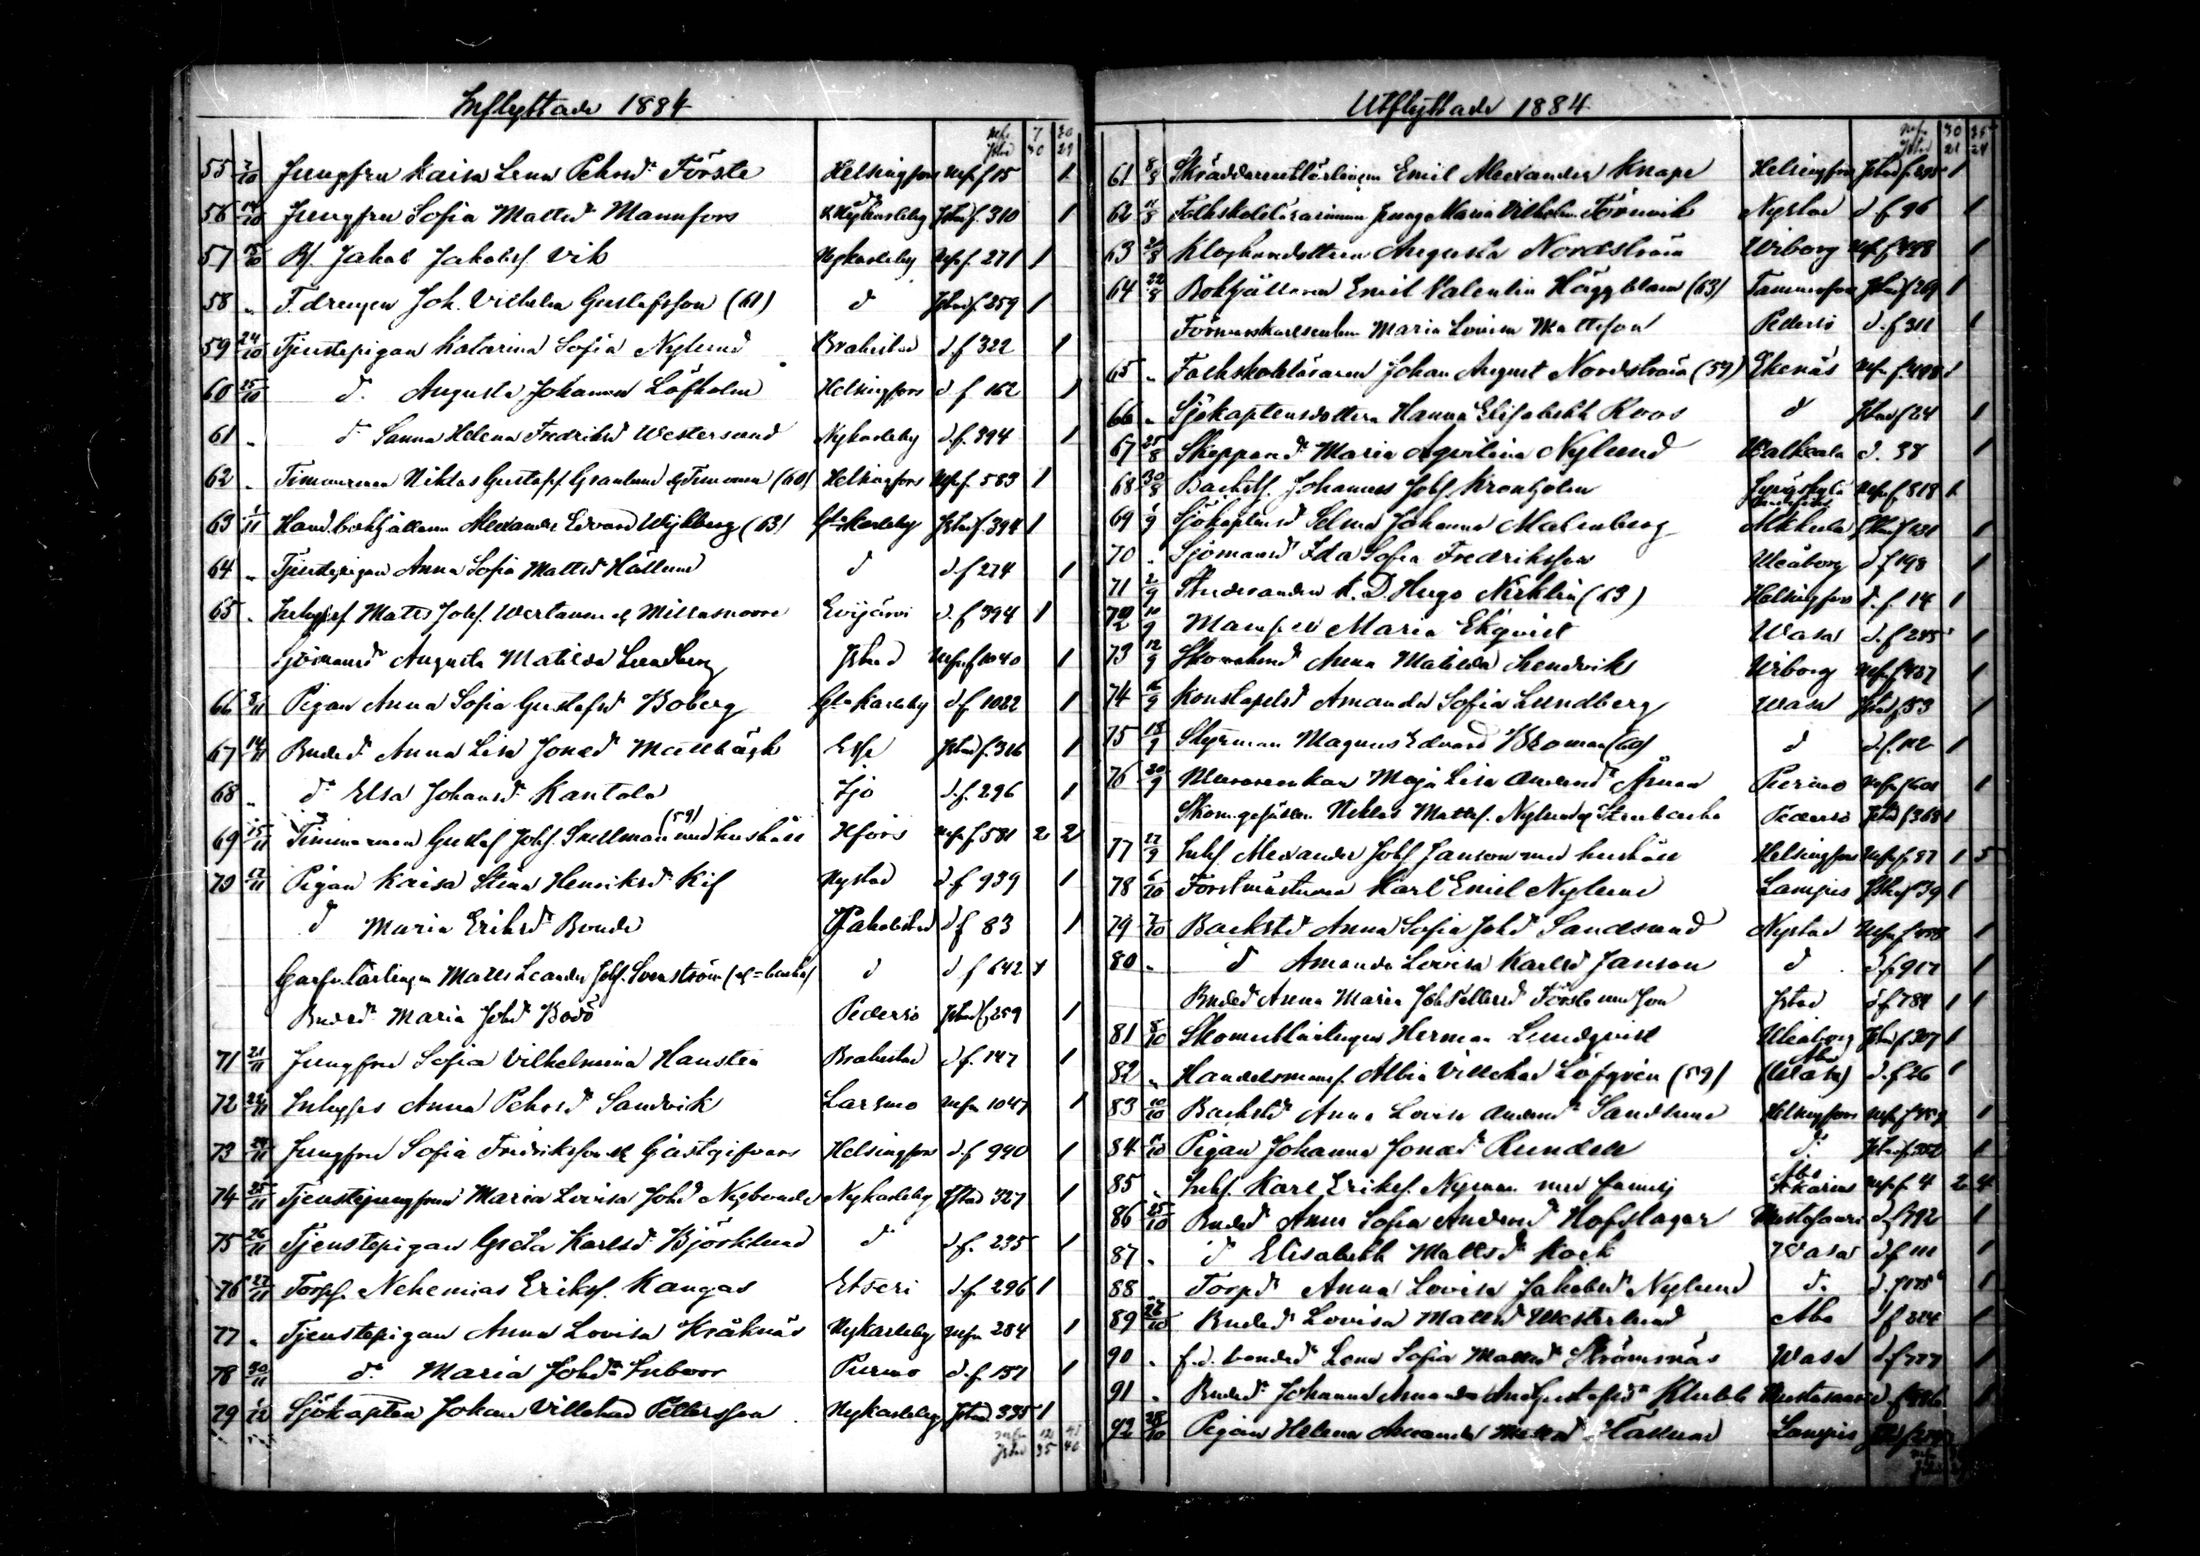 Inflyttade 1884
55 2/10 Jungfru Kaisa Lena Pehrsdr Förste Helsingfors Nfr f 15 1
56 14/10 Jungfru Sofia Mattsdr Mannfors Nykarleby Jstad f. 310 1
57 15/10 Bs. Jakob Jakobss. Vik Nykarleby Nfr f. 271 1
58 " F. drengen Joh. Vilhelm Gustafsson (61) d Jstad f. 259 1
59 24/10 Tjenstepigan Katarina Sofia Nylund Brahestad d f 322 1
60 25/10 dr Augusta Johanna Löfholm Helsingfors d f 162 1
61 " dr Sanna Helena Fredriksdr Westersund Nykarleby d. f. 394 1
62 " Timmerman Niklas Gustafs Granlund (60) Helsingfors Nfr f. 583 1
63 1/11 Hand. bokhållaren Alexander Edvard Wiklberg (63) Gla Karleby Jstad f. 394 1
64 " Tjenstepigan Anna Sofia Mattsdr Hällund d d f 274 1
65 " Inhyses Matts Johs. Wertanen Evijärvi d. f 394 1
Sjömansdr Augusta Matilda Lundberg Jstad Nfr f 1040 1
66 8/11 Pigan Anna Sofia Gustafsdr Boberg Gla Karleby d f 1022 1
67 14/11 Bondedr Anna Lisa Jonasdr Mattbäck Esse Jstad f. 316 1
68 " dr Elsa Johansdr Kantola Ijo d. f. 296 1
69 15/11 Timmerman Gustaf Johs. Snellman (59) med hushåll Hfors Nfr f 581 2 2
70 17/11 Pigan Kaisa Stina Henriksdr Kif Nystad d. f 939 1
d Maria Eriksdr Bonde Jakobstad d f 83 1
Garfv. lärlingen Matts Leander Johs. Svenström d d f 642 1
Bondedr Maria Johsdr Bodö Pedersö Jstad f 259 1
71 21/11 Jungfru Sofia Vilhelmina Hansten Brahestad d. f. 147 1
72 22/11 Inhyses Anna Pehrsdr Sandvik Larsmo Nfr 1047 1
73 24/11 Jungfru Sofia Fredriksson Gästgifvars Helsingfors d. f 990 1
74 25/11 Tjenstejungfrun Maria Lovisa Johsdr Nybonde Nykarleby Jstad 327 1
75 26/11 Tjenstepigan Greta Karlsdr Björklund d d. f. 235 1
76 27/11 Torps. Nehemias Eriks. Kangas Etseri d. f. 296 1
77 " Tjenstepigan Anna Lovisa Kråknäs Nykarleby Nfr 284 1
78 30/11 dr Maria Johsdr Inborr Purmo d. f. 151 1
79 1/12 Sjökapten Johan Villehad Pettersson Nykarleby Jstad 335 1
Utflyttade 1884
61 8/8 Skräddarelärlingen Emil Alexander Knape Helsingfors Jstad f. 1
62 11/8 Folkskolelärarinnan Maria Vilhelm. Törnvik Nystad d f 96 1
63 20/8 Klockaredottern Augusta Nordström Wiborg Nfr f. 498 1
64 22/8 Bokhållaren Emil Valentin Häggblom (63) Tammerfors Jstad f 269 1
Maria Lovisa Mattsson Pedersö d. f 311 1
65 " Folkskoleläraren Johan August Nordström (59) Ekenäs Nfr f. 498 1
66 " Sjökaptensdottern Hanna Elisabeth Roos d Jstad f 24 1
67 25/8 Skeppardr Maria Agvilina Nylund Walkeala d. 38 1
68 30/8 Backsts. Johannes Johs Kronholm Nfr f 818 1
69 1/9 Sjökaptensdr Selma Johanna Malmberg Mikkela Jstad f 131 1
70 " Sjömansdr Ida Sofia Fredriksson Uleåborg d f 198 1
71 2/9 Studeranden K. D. Hugo Nicklin (63) Helsingfors d. f. 14 1
72 10/9 Mamsell Maria Ekqvist Wasa d. f 245 1
73 12/9 Anna Matilda Sandvik Wiborg Nfr f. 437 1
74 16/9 Konstapelsdr Amanda Sofia Lundberg Wasa Jstad f 53 1
75 18/9 Styrman Magnus Edvard Broman (60) d d. f. 112 1
76 20/9 Murareenkan Maja Lisa Andersdr Åman Purmo Nfr f 601 1
Skom. gesällen Niklas Mattss. Nylund Pedersö Jstad f 363 1
77 27/9 Inhs. Alexander Johs Janson med hushåll Helsingfors Nfr f. 37 1 5
78 1/10 Forstmästaren Karl Emil Nylund Lampis Jstad f 39 1
79 2/10 Backstdr Anna Sofia Johsdr Sandsund Nystad Nfr f 1
80 " d Amanda Lovisa Karlsdr Janson d d. f 917 1
Bondedr Anna Maria Joh. Pettersdr Förste med son Jstad d f 784 1 1
81 8/10 Skomakarelärlingen Herman Lundqvist Uleåborg Jstad f 307 1
82 " Handelsmans. Albin Villehad Löfgren (59) Åbo d. f 26 1
83 10/10 Backstdr Anna Lovisa Andersdr Sandlund Helsingfors Nfr f 1
84 11/10 Pigan Johanna Jonasdr Rundell dr Jstad f 1
85 " Inhs. Karl Eriks. Nyman med familj S:t Karins Nfr f. 4 2 4
86 25/10 Bondedr Anna Sofia Andersdr Hofslagar Mustasaari d f 792 1
87 " d Elisabeth Mattsdr Kock Wasa d f 111 1
88 " Torpdr Anna Lovisa Jakobsdr Nylund d. d. f 175 1
89 27/10 Bondedr Lovisa Mattsdr Westerlund Åbo d f 324 1
90 " f. d. bondedr Lena Sofia Mattsdr Strömsnäs Wasa d. f 777 1
91 " Bondedr Johanna Amanda And. Gustafsdr Klubb Mustasaari d. f 1
92 28/10 Pigan Helena Alexandra Mattsdr Hällund Lampis Jstad f